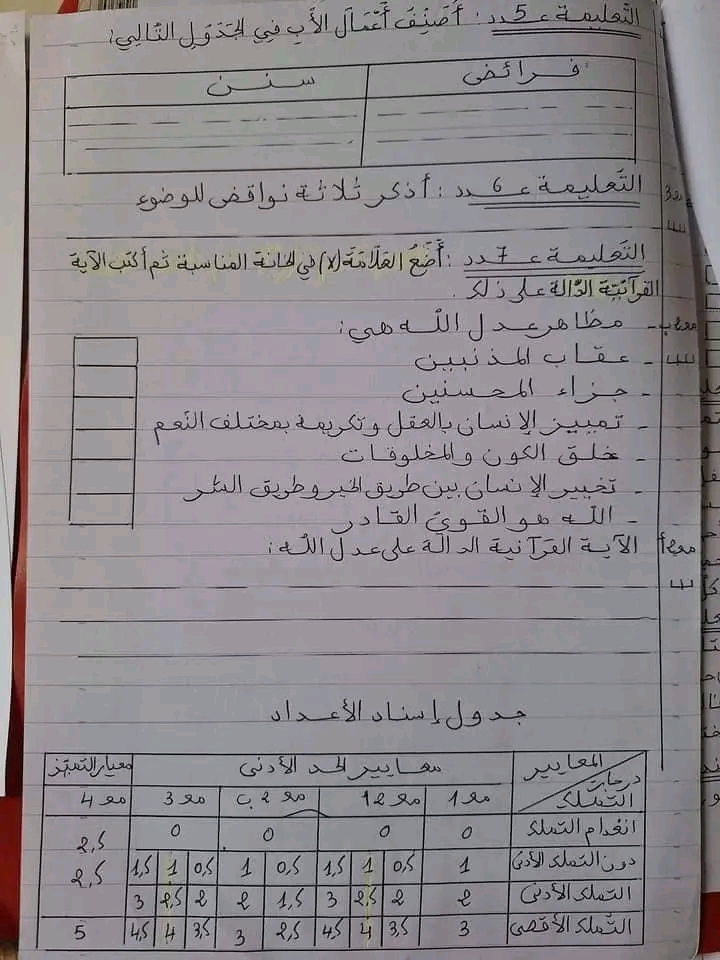 التّعليمة عـ5ـدد : أُصَنِّفُ أَعْمَالَ الأَبِ فِي الجَدْوَلِ التَّالِي:
فرائض سنن
التّعليمة عـ6ـدد : أذكر ثلاثة نواقض للوضوء
مع3
التّعليمة عـ7ـدد : أَضَعُ العَلاَمَةَ (x) في الخانة المناسبة ثم أكتب الآية
القرآنيّة الدّالة على ذلك.
مع2ب - مظاهر عدل الله هي:
- عقاب المذنبين
- جزاء المحسنين
- تمييز الإنسان بالعقل وتكريمه بمختلف النّعم
- خلق الكون والمخلوقات
- تخيير الإنسان بين طريق الخير وطريق الشر
- الله هو القويّ القادر
مع2أ الآية القرآنية الدالة على عدل الله:
جدول إسناد الأعداد
المعايير معايير الحد الأدنى معيار التميّز
درجات التملك مع1 مع2أ مع2ب مع3 مع4
انعدام التملك 0 0 0 0
دون التملك الأدنى 1 0,5 1 1,5 0,5 1 0,5 1 1,5 2,5
التملك الأدنى 2 2 2,5 3 1,5 2 2 2,5 3 2,5
التملك الأقصى 3 3,5 4 4,5 2,5 3 3,5 4 4,5 5